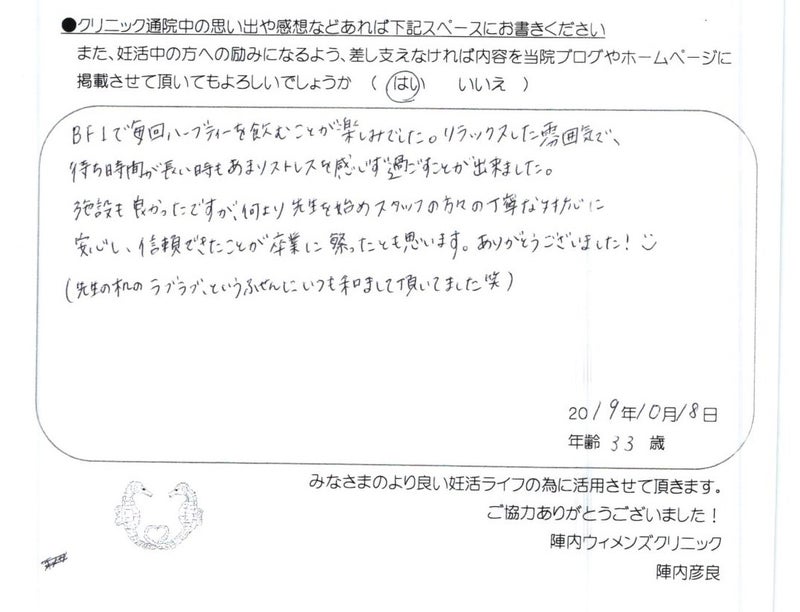 ●クリニック通院中の思い出や感想などあれば下記スペースにお書きください
また、妊活中の方への励みになるよう、差し支えなければ内容を当院ブログやホームページに
掲載させて頂いてもよろしいでしょうか （ はい いいえ ）
BF1で毎回ハーブティーを飲むことが楽しみでした。リラックスした雰囲気で、
待ち時間が長い時もあまりストレスを感じず過ごすことが出来ました。
施設も良かったですが、何より先生を始めスタッフの方々の丁寧な対応に
安心し、信頼できたことが卒業に繋ったとも思います。ありがとうございました！
(先生の机のラブラブ、というふせんにいつも和まして頂いてました笑)
2019年10月18日
年齢 33 歳
みなさまのより良い妊活ライフの為に活用させて頂きます。
ご協力ありがとうございました！
陣内ウィメンズクリニック
陣内彦良